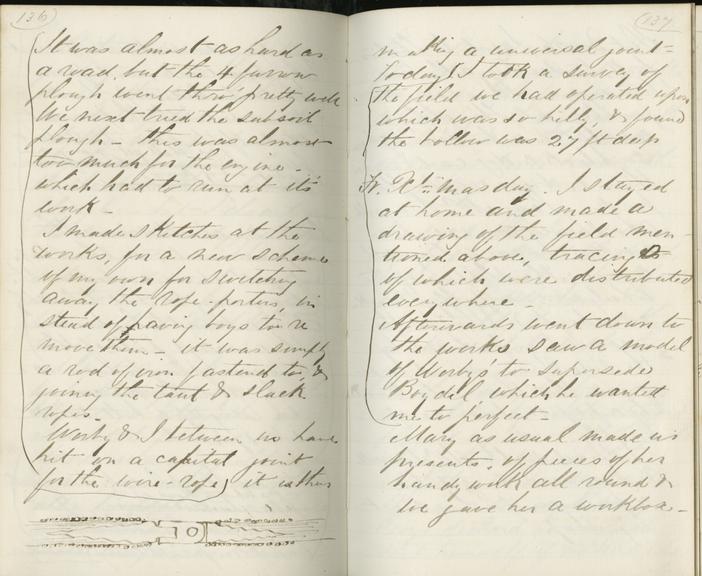 136
It was almost as hard as
a road, but the 4 furrow
plough went thro' pretty well
We next tried the subsoil
plough - this was almost
too much for the engine -
which had to run at its
work -
I made sketches at the
works, for a new scheme
of my own for switching
away the rope-porters, in
stead of having boys to re
move them - it was simply
a rod of iron fastend to, &
joining the taut & slack
ropes.
Worby & I between us have
hit on a capital joint
for the wire-rope, it is thus
137
making a universal joint -
Today I took a survey of
the field we had operated upon
which was so hilly, & found
the hollow was 27 ft deep
Fr. Xtmas day. I stayed
at home and made a
drawing of the field men-
tioned above, tracings
of which were distributed
everywhere -
Afterwards went down to
the works saw a model
of Worby's to supersede
Boydel, which he wanted
me to perfect -
Mary as usual made us
presents, of pieces of her
handy work all round &
we gave her a workbox -